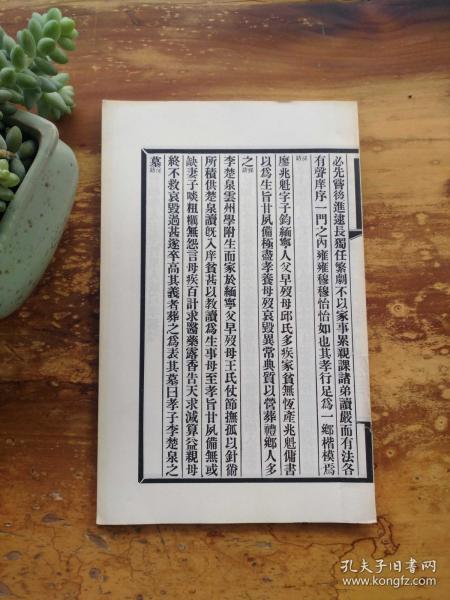 必先嘗後進逮長獨任繁劇不以家事累親課諸弟讀嚴而有法各
有聲庠序一門之內雍雍穆穆怡怡如也其孝行足為一鄉楷模焉
採訪
廖兆魁字子鈞緬寧人父早歿母邱氏多疾家貧無恆產兆魁傭書
以為生旨甘夙備極盡孝養母歿哀毀異常典質以營葬禮鄉人多
之採訪
李楚泉雲州學附生而家於緬寧父早歿母王氏仗節撫孤以針黹
所積供楚泉讀旣入庠貧甚以教讀為生事母至孝旨甘夙備無或
缺妻子啖粗糲無怨言母疾百計求醫藥露香告天求減算益親母
終不救哀毀過甚遂卒高其義者葬之為表其墓曰孝子李楚泉之
墓採訪
孔夫子旧书网
www.kongfz.com